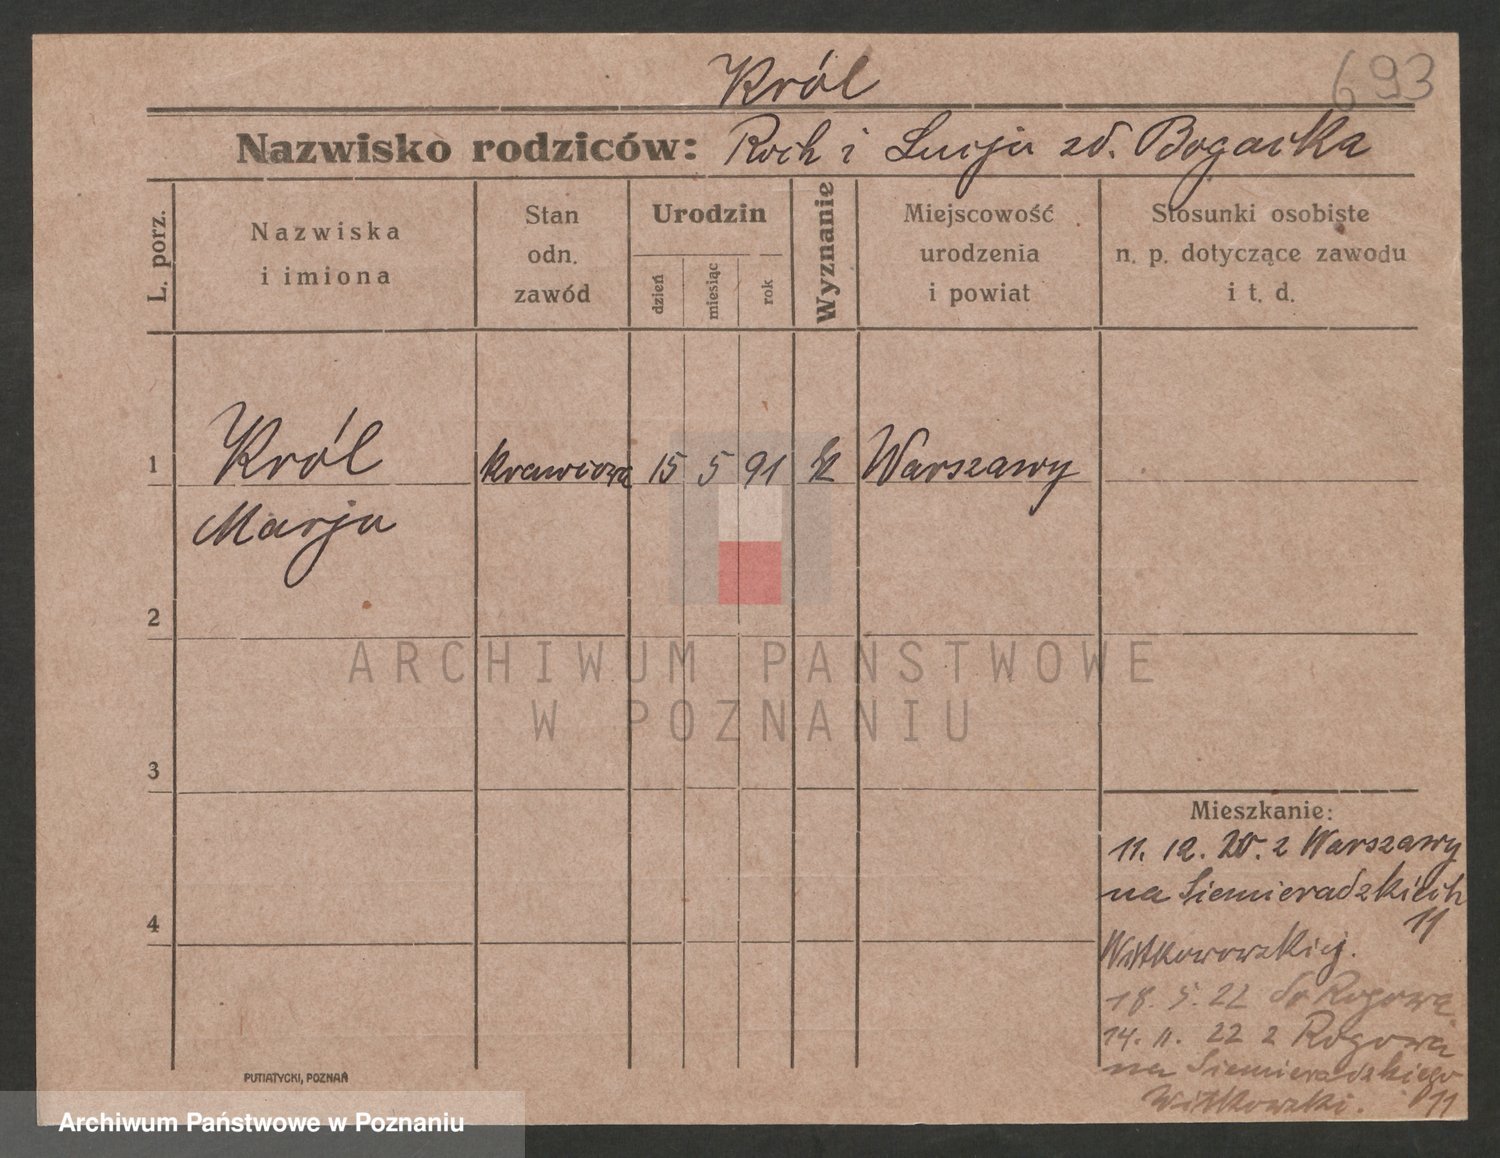 693
Król
Nazwisko rodziców: Roch i Lucja zd. Bogacka
L. porz.
Nazwiska
i imiona
Stan
odn.
zawód
Urodzin
dzień
miesiąc
rok
Wyznanie
Miejscowość
urodzenia
i powiat
Stosunki osobiste
n. p. dotyczące zawodu
i t. d.
1 Król krawcowa 15 5 91 Warszawy
Marja
2
ARCHIWUM PAŃSTWOWE
W POZNANIU
3
Mieszkanie:
11. 12. 20. z Warszawy
na Siemieradzkich
11
4
18. 5. 22 do Rogowa
14. 11. 22 z Rogowa
na Siemieradzkiego
Witkowski. 11
PUTIATYCKI, POZNAŃ
Archiwum Państwowe w Poznaniu